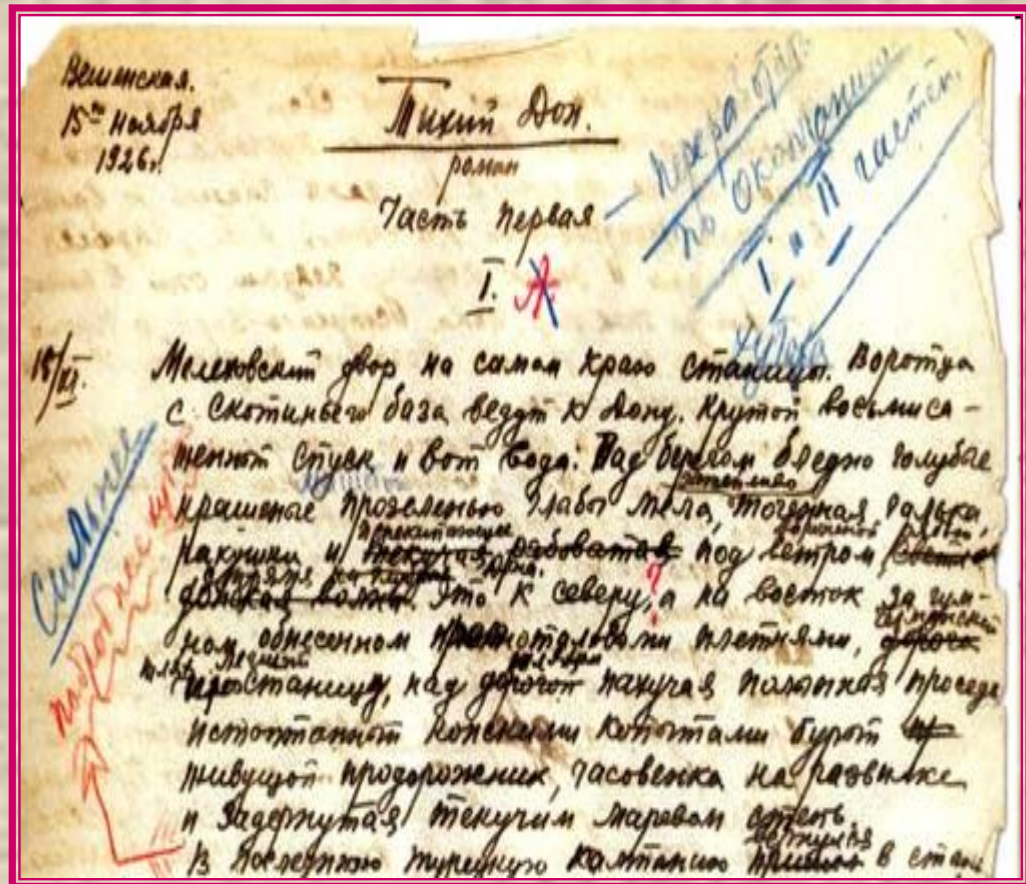 Вешенская.
15го ноября
1926г.
Тихий Дон.
роман
Часть первая
— перераб отд.
по окончании
I и II частей.
I.
хутора
15/XI.
Мелеховский двор на самом краю станицы. Воротца
с скотиньего база ведут к Дону. Крутой восьмиса-
женный спуск и вот вода: Над берегом бледно голубые
крашеные прозеленью глабы мела, точенная галька,
ракушки и перекипающие текучая рябоватая под ветром
донская волна. Это к северу, а на восток за гум-
ном обнесенном краснотоловыми плетнями,
над пахучая полынная проседь
истоптанный конскими копытами бурый
живущой придорожник, часовенка на развилке
и задернутая текучим маревом степь.
В последнюю турецкую кампанию вернулся в стани
Сильнее
подробнее